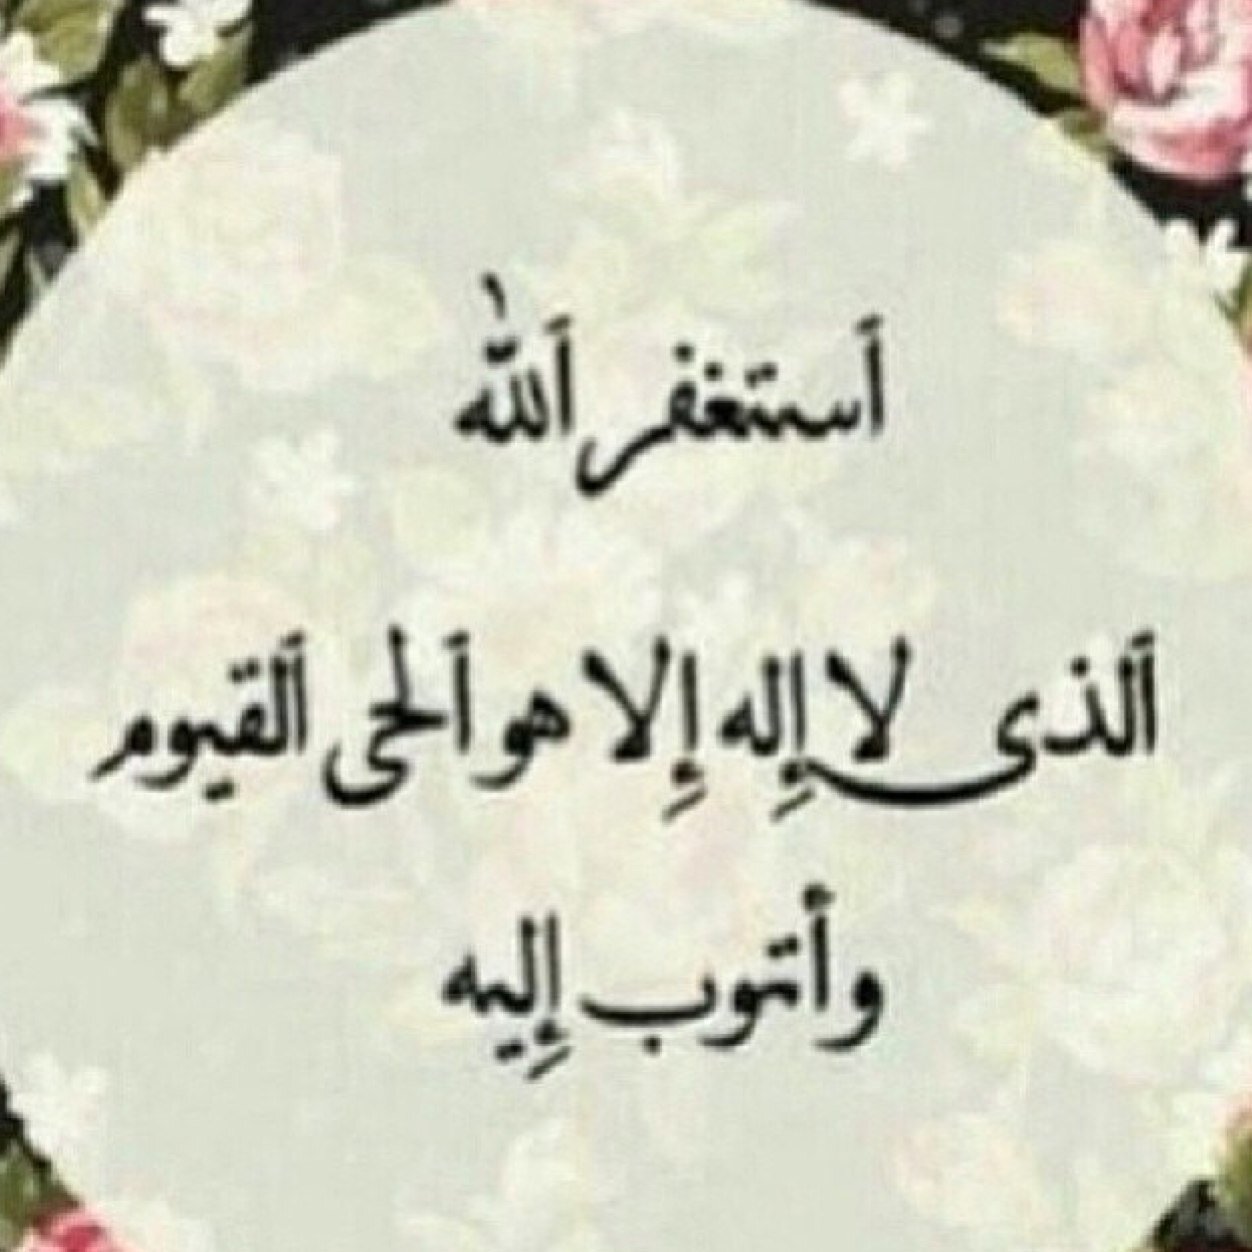 ٱستغفر ٱللّٰه
ٱلذى لا إِله إِلا هو ٱلحى ٱلقيوم
وأتوب إِليه